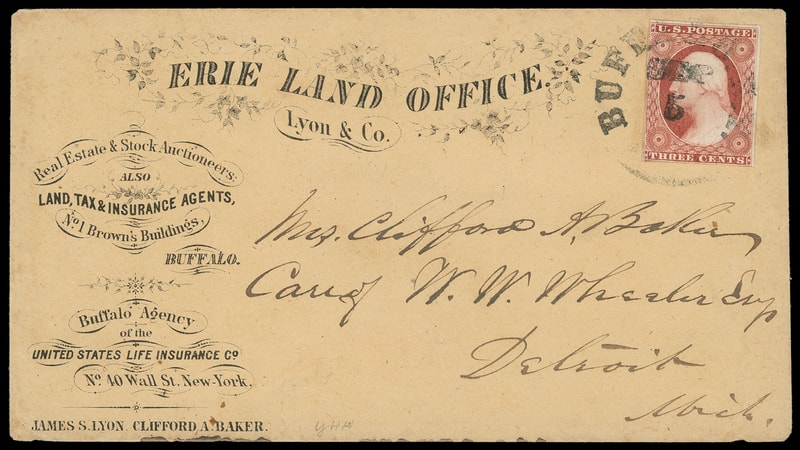 ERIE LAND OFFICE.
Lyon & Co.
Real Estate & Stock Auctioneers:
ALSO
LAND, TAX & INSURANCE AGENTS,
No. 1 Brown's Buildings,
BUFFALO.
Buffalo Agency
of the
UNITED STATES LIFE INSURANCE Co
No. 40 Wall St. New-York.
JAMES S. LYON. CLIFFORD A. BAKER.
U.S. POSTAGE
THREE CENTS
BUFF
5
Mrs. Clifford A. Baker
Care of W. W. Wheeler Esq
Detroit
Mich.